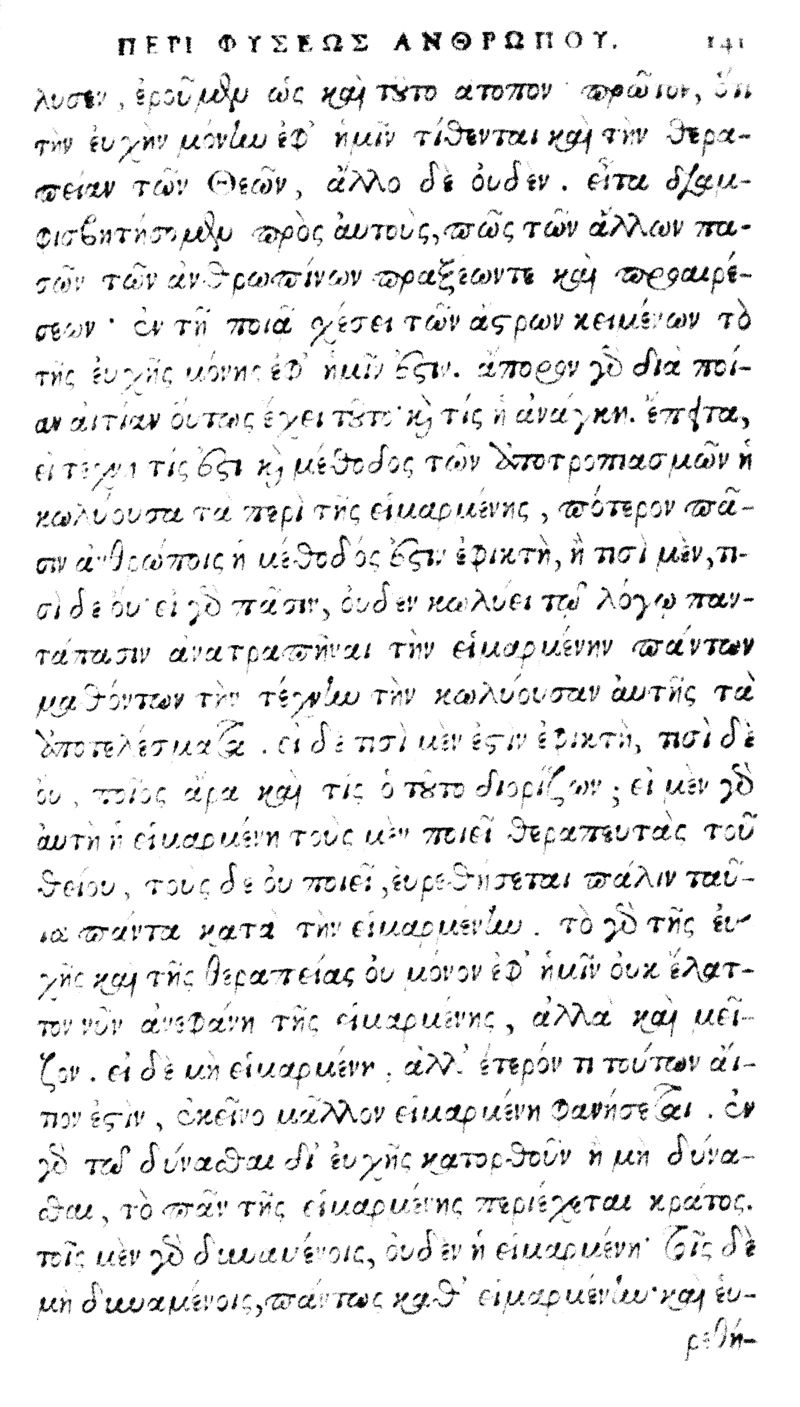 ΠΕΡΙ ΦΥΣΕΩΣ ΑΝΘΡΩΠΟΥ. 141
λυσεν, ἐροῦμϑμ ὡς καὶ τοῦτο ατοπον· πρῶτον, ὅτι
τὴν ἐυχὴν μόνην ἐφ’ ἡμῖν τίθενται καὶ τὴν θερα-
πείαν τῶν Θεῶν, ἄλλο δὲ ὀυδὲν. εἶτα διαμ-
φισβητήσομεν πρὸς ἀυτοὺς, πῶς τῶν ἄλλων πα-
σῶν τῶν ἀνθρωπίνων πράξεώντε καὶ προαιρέ-
σεων· ἐν τῇ ποιᾷ σχέσει τῶν ἄστρων κειμένων τὸ
τῆς ἐυχῆς μόνης ἐφ’ ἡμῖν ἐστιν. ἄπορον γὸ διὰ ποί-
αν ἀιτίαν ὅυτως ἔχει τοῦτο· καὶ τίς ἡ ἀνάγκη. ἔπειτα,
εἰ τέχνη τίς ἐστι καὶ μέθοδος τῶν ὑποτροπιασμῶν ἡ
κωλύουσα τὰ περὶ τῆς εἱμαρμένης, πότερον πᾶ-
σιν ἀνθρώποις ἡ μέθοδός ἐστιν ἐφικτὴ, ἢ τισὶ μὲν, τι-
σὶ δὲ ὄυ· εἰ γὸ πᾶσιν, ὀυδὲν κωλύει τῷ λόγῳ παν-
τάπασιν ἀνατραπῆναι τὴν εἱμαρμένην πάντων
μαθόντων τὴν τέχνην τὴν κωλύουσαν ἀυτῆς τὰ
ὑποτελέσματα. εἰ δὲ τισὶ μὲν ἐστὶν ἐφικτὴ, τισὶ δὲ
ὀυ, ποῖος ἄρα καὶ τίς ὁ τοῦτο διορίζων; εἰ μὲν γὸ
ἀυτὴ ἡ εἱμαρμένη τοὺς μὲν ποιεῖ θεραπευτὰς τοῦ
θείου, τοὺς δὲ ὀυ ποιεῖ, ἑυρεθήσεται πάλιν ταῦ-
τα πάντα κατὰ τὴν εἱμαρμένην. τὸ γὸ τῆς ἐυ-
χῆς καὶ τῆς θεραπείας ὀυ μόνον ἐφ’ ἡμῖν ὀυκ ἔλατ-
τον νῦν ἀνεφάνη τῆς εἱμαρμένης, ἀλλὰ καὶ μεῖ-
ζον. εἰ δὲ μὴ εἱμαρμένη, ἀλλ’ ἕτερόν τι τούτων ἄι-
τιον ἐστὶν, ἐκεῖνο μᾶλλον εἱμαρμένη φανήσεται. ἐν
γὸ τῷ δύνασθαι δι’ ἐυχῆς κατορθοῦν ἢ μὴ δύνα-
σθαι, τὸ πᾶν τῆς εἱμαρμένης περιέχεται κράτος.
τοῖς μὲν γὸ δυναμένοις, ὀυδὲν ἡ εἱμαρμένη· τοῖς δὲ
μὴ δυναμένοις, πάντως καθ’ εἱμαρμένην· καὶ ἑυ-
ρεθή-